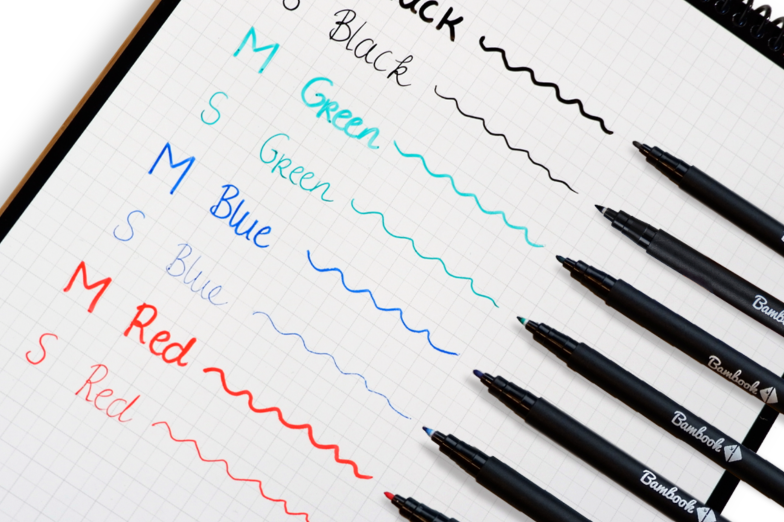 ack
S Black
M Green
S Green
M Blue
S Blue
M Red
S Red
Bamb
Bambook
Bambook
Bambook